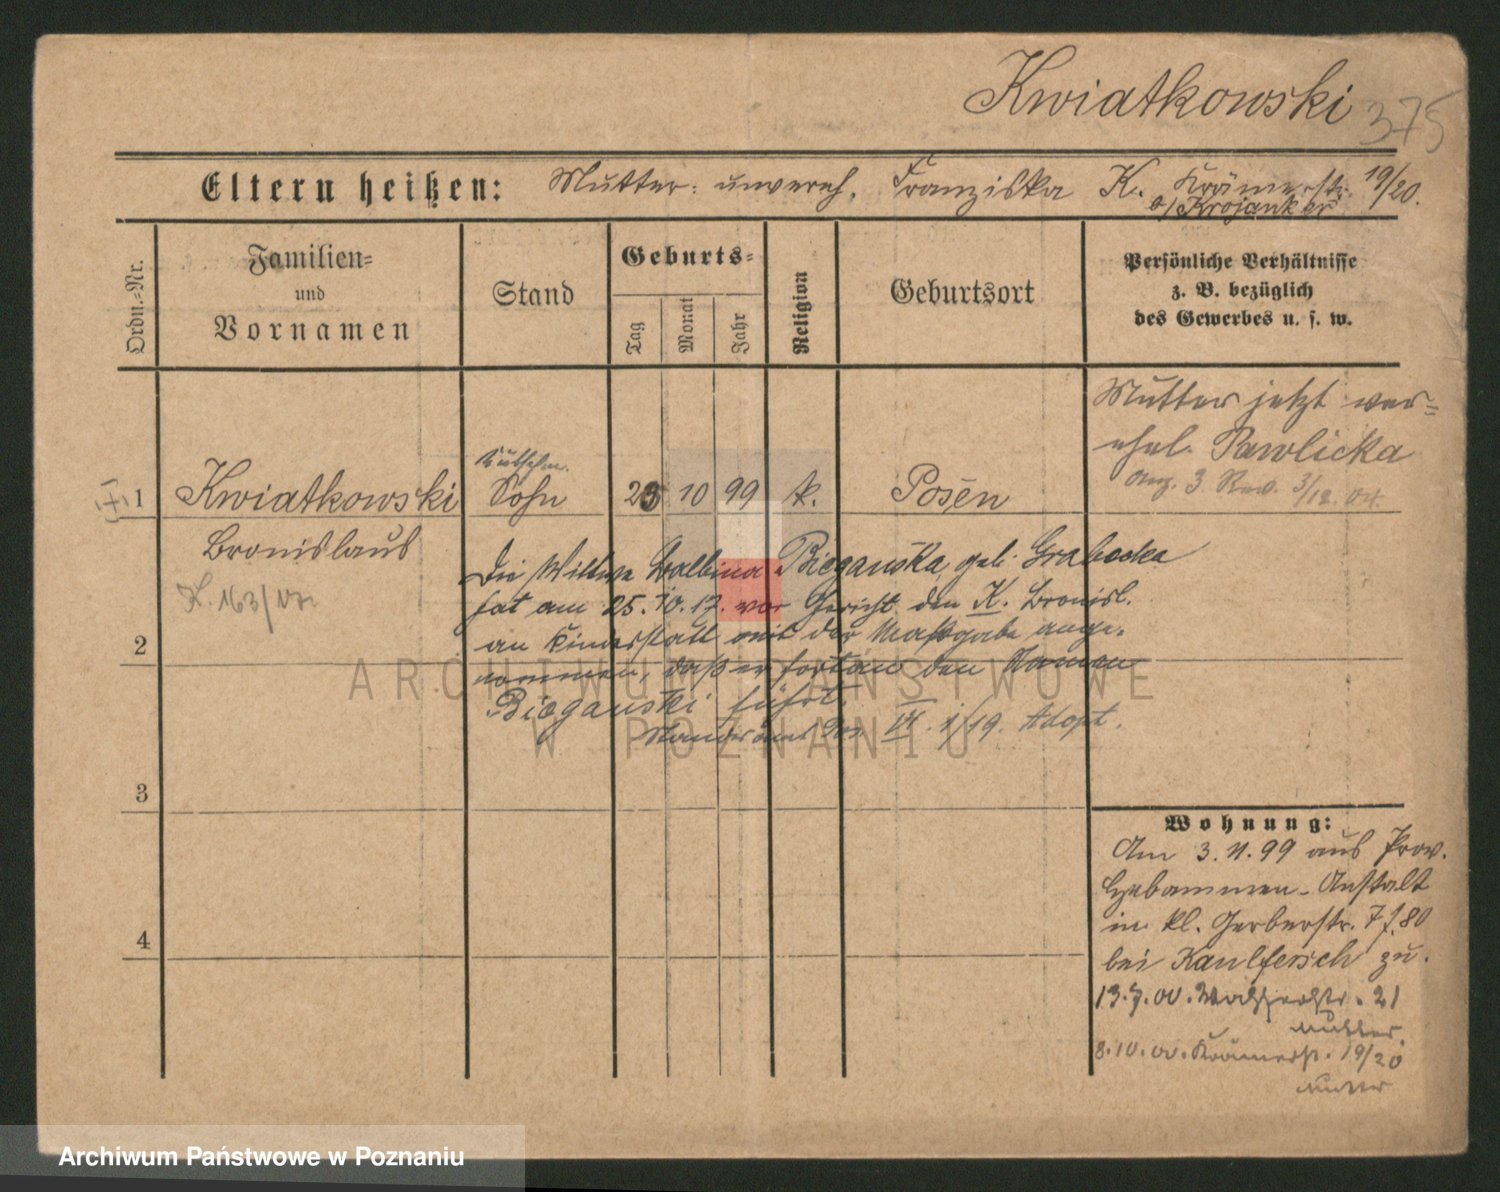 Kwiatkowski 375
Eltern heißen: Mutter: unvereh. Franziska K. Krämerstr. 19/20.
b/Krojanker
Ordn.-Nr.
Familien-
und
Vornamen
Stand
Geburts-
Tag
Monat
Jahr
Religion
Geburtsort
Persönliche Verhältnisse
z. B. bezüglich
des Gewerbes u. s. w.
Mutter jetzt ver-
ehel. Pawlicka
Anz. 3. Rev. 3/12. 04.
(+) 1 Kwiatkowski Sohn 25 10 99 k. Posen
Bronislaus
K. 163/17.
Die Wittwe Balbina Bieganska geb. Grabocka
hat am 25. 10. 17. vor Gericht den K. Bronisl.
an Kindesstatt mit der Maßgabe ange-
nommen, daß er fortan den Namen
Bieganski führt.
Standesamt Pos. VI. 1/19. Adopt.
2
3
4
Wohnung:
Am 3. 11. 99 aus Prov.
Hebammen-Anstalt
in kl. Gerberstr. 7 f. 80
bei Kaulfersch zu.
13. 7. 00. 21
Mutter
8. 10. 00. Krämerstr. 19/20
Mutter
ARCHIWUM PAŃSTWOWE
W POZNANIU
Archiwum Państwowe w Poznaniu